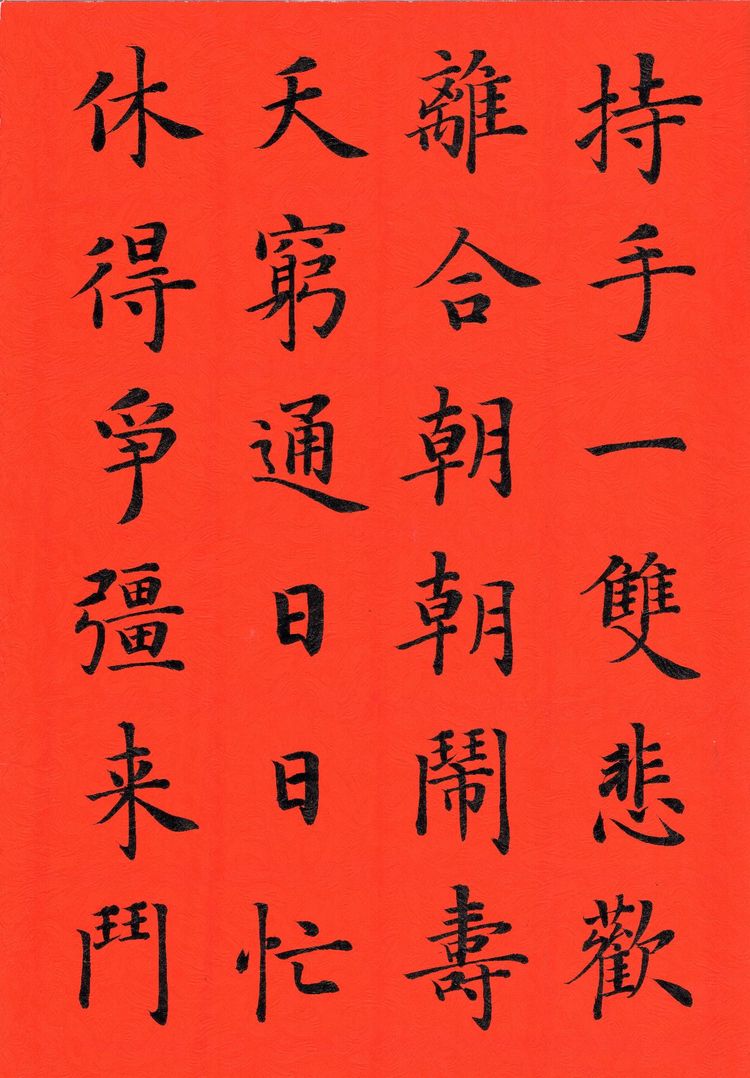 持手一雙悲歡
離合朝朝鬧壽
夭窮通日日忙
休得爭彊来鬥